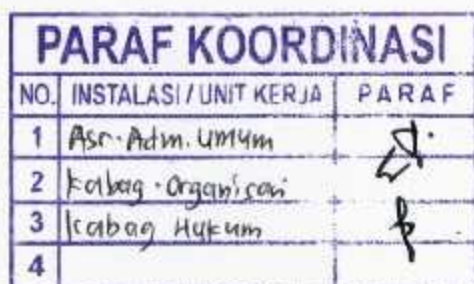 PARAF KOORDINASI
NO. INSTALASI / UNIT KERJA PARAF
1 Asr. Adm. Umum
2 Kabag. Organisasi
3 Kabag Hukum
4